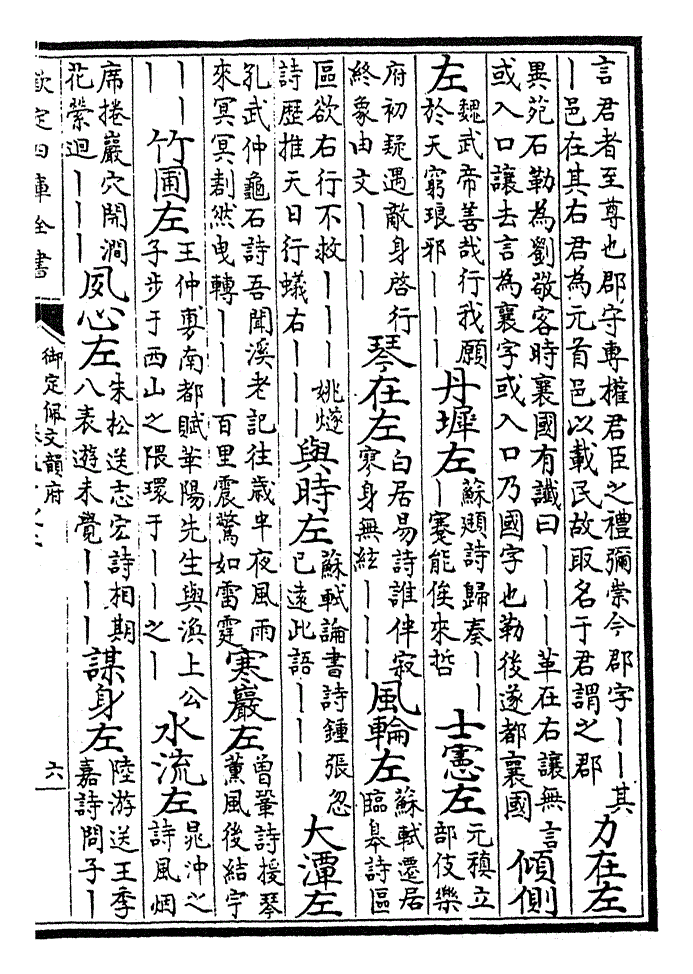 言君者至尊也郡守専權君臣之禮彌崇今郡字丨丨其
丨邑在其右君為元首邑以載民故取名于君謂之郡
力在左
異苑石勒為劉敬客時襄國有讖曰丨丨丨革在右讓無言
或入口讓去言為襄字或入口乃國字也勒後遂都襄國
傾側
左
魏武帝善哉行我願
於天窮琅邪丨丨丨
丹墀左
蘇頲詩歸奏丨丨
丨蹇能俟來哲
士憲左
元稹立
部伎樂
府初疑遇敵身啓行
終象由文丨丨丨
琴在左
白居易詩誰伴寂
寥身無絃丨丨丨
風輪左
蘇軾遷居
臨皋詩區
區欲右行不救丨丨丨姚燧
詩歷推天日行蟻右丨丨丨
與時左
蘇軾論書詩鍾張忽
已遠此語丨丨丨
大潭左
孔武仲龜石詩吾聞溪老記往歲半夜風雨
來冥冥剨然曳轉丨丨丨百里震驚如雷霆
寒巖左
曾鞏詩授琴
薰風後結宇
丨丨
丨
竹圃左
王仲旉南都賦華陽先生與渙上公
子步于西山之隈環于丨丨之丨
水流左
晁沖之
詩風烟
席捲巖穴開澗
花縈迴丨丨丨
夙心左
朱松送志宏詩相期
八表遊未覺丨丨丨
謀身左
陸游送王季
嘉詩問子丨
欽定四庫全書
御定佩文韻府
六